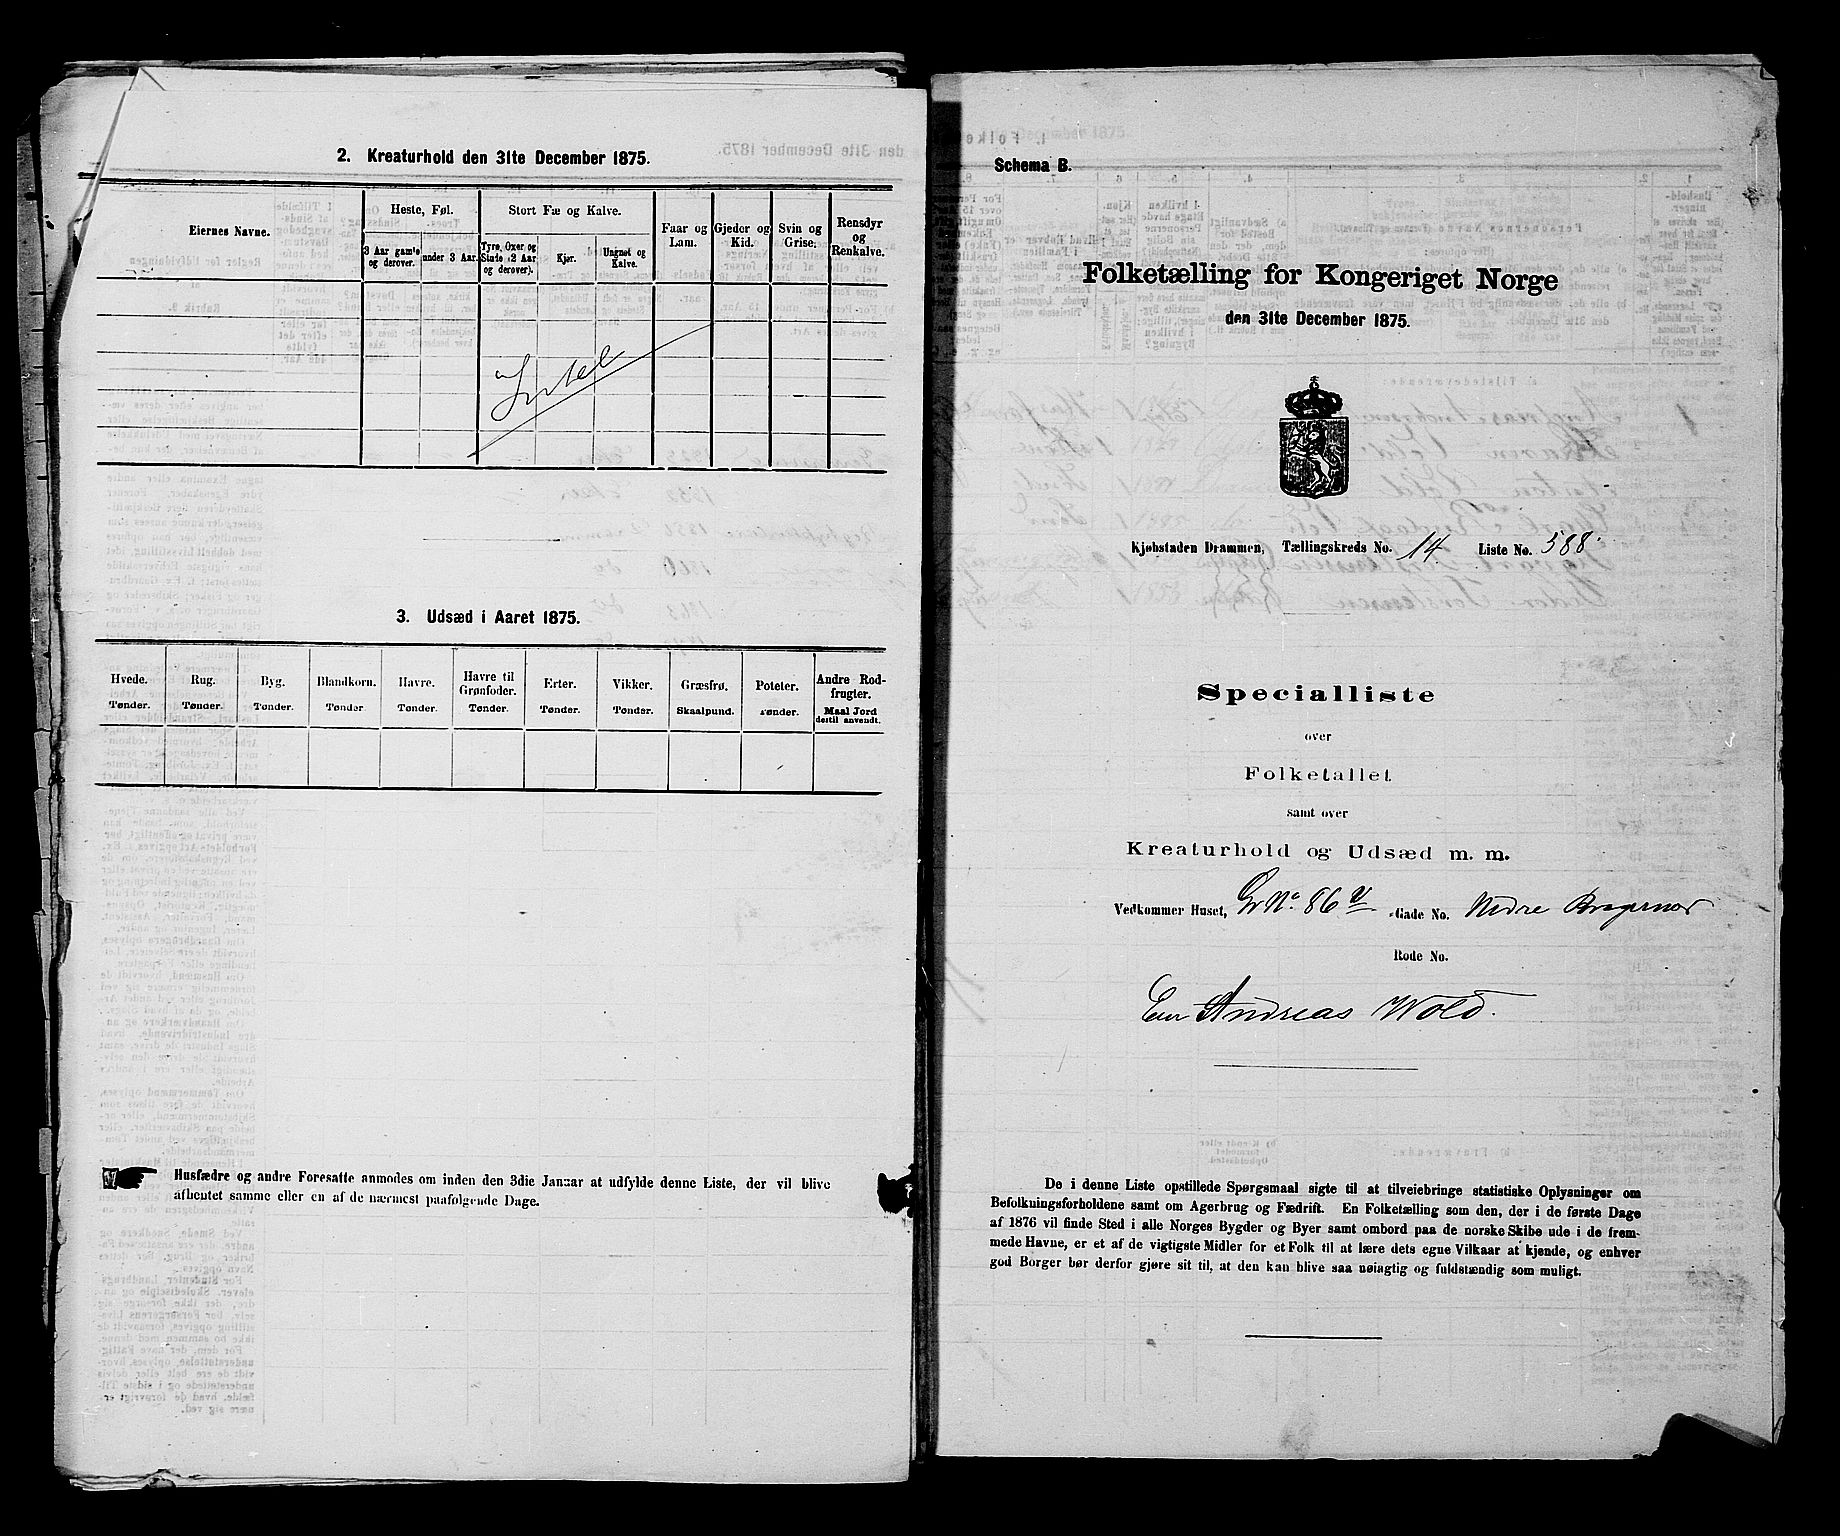 2. Kreaturhold den 31te December 1875.
Eiernes Navne.
Heste, Føl.
Stort Fæ og Kalve.
Faar og Lam.
Gjeder og Kid.
Svin og Grise.
Rensdyr og Renkalve.
3 Aar gamle og derover.
under 3 Aar.
Tyre, Oxer og Stude (2 Aar og derover).
Kjør.
Ungnøt og Kalve.
Intet
3. Udsæd i Aaret 1875.
Hvede. Rug. Byg. Blandkorn. Havre. Havre til Grønfoder. Erter. Vikker. Græsfrø. Poteter. Andre Rodfrugter.
Tønder. Tønder. Tønder. Tønder. Tønder. Tønder. Tønder. Tønder. Skaalpund. Tønder. Maal Jord dertil anvendt.
Husfædre og andre Foresatte anmodes om inden den 3die Januar at udfylde denne Liste, der vil blive
afhentet samme eller en af de nærmest paafølgende Dage.
Schema B.
Folketælling for Kongeriget Norge
den 31te December 1875.
Kjøbstaden Drammen, Tællingskreds No. 14 Liste No. 588.
Specialliste
over
Folketallet
samt over
Kreaturhold og Udsæd m. m.
Vedkommer Huset, Gr No. 86 Gade No. Nedre Bragernes
Rode No.
Eier Andreas Wold.
De i denne Liste opstillede Spørgsmaal sigte til at tilveiebringe statistiske Oplysninger om
Befolkningsforholdene samt om Agerbrug og Fædrift. En Folketælling som den, der i de første Dage
af 1876 vil finde Sted i alle Norges Bygder og Byer samt ombord paa de norske Skibe ude i de frem-
mede Havne, er et af de vigtigste Midler for et Folk til at lære dets egne Vilkaar at kjende, og enhver
god Borger bør derfor gjøre sit til, at den kan blive saa nøiagtig og fuldstændig som muligt.